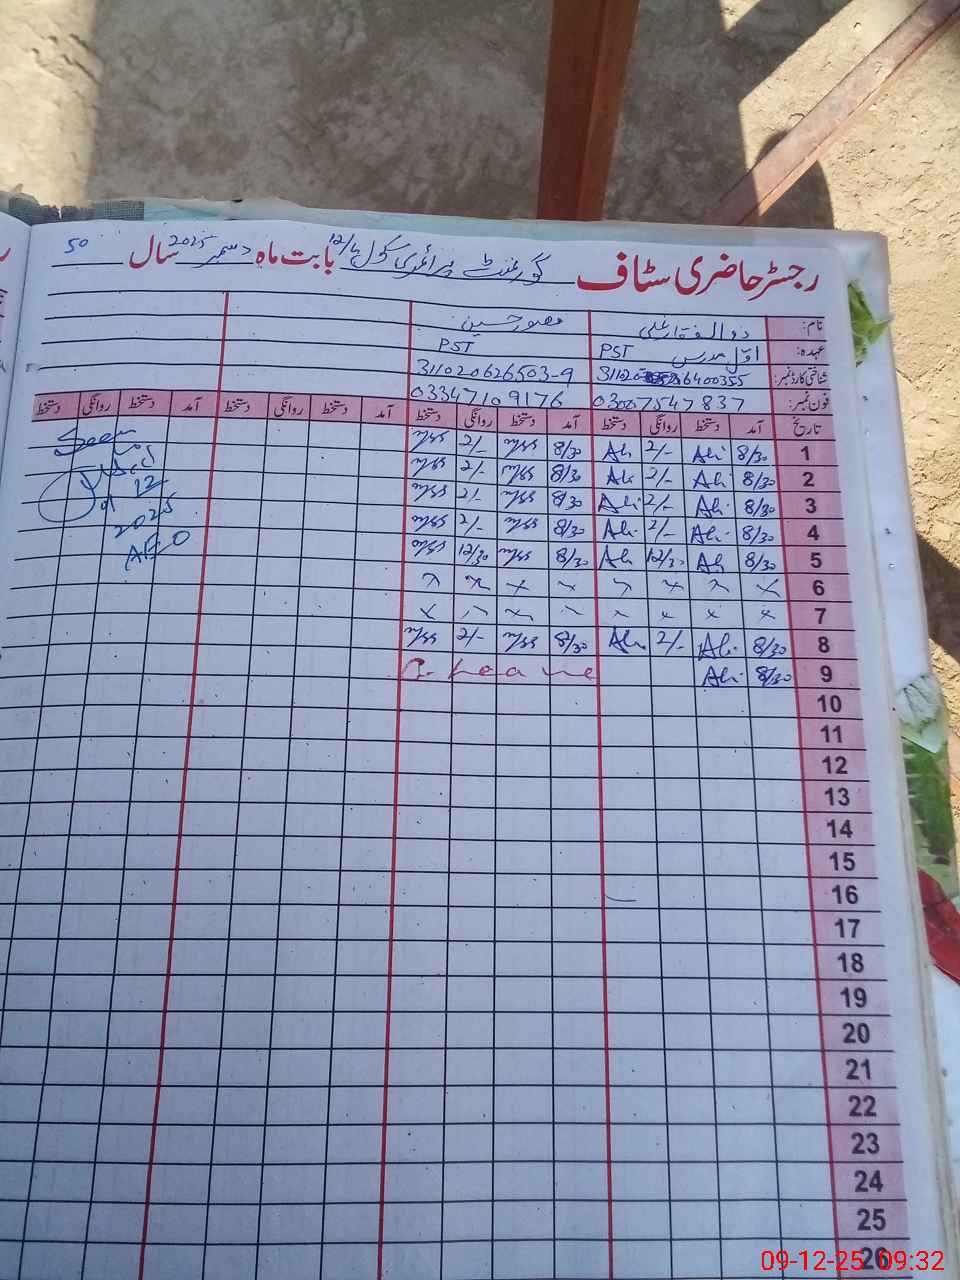 رجسٹر حاضری سٹاف گورنمنٹ پرائمری سکول بابت ماہ دسمبر سال 2025 50
نام: ذوالفقار علی منصور حسین
عہدہ: اوّل مدرس PST PST
شناختی کارڈ نمبر: 311020626503-9
فون نمبر: 03007547837 03347109176
تاریخ آمد دستخط روانگی دستخط آمد دستخط روانگی دستخط آمد دستخط روانگی دستخط آمد دستخط روانگی دستخط
1 8/30 Ali 2/- Ali 8/30 2/-
2 8/30 Ali 2/- Ali 8/30 2/-
3 8/30 Ali 2/- Ali 8/30 2/-
4 8/30 Ali 2/- Ali 8/30 2/-
5 8/30 Ali 12/30 Ali 8/30 12/30
6 x x x x x x x x
7 x x x x x x x x
8 8/30 Ali 2/- Ali 8/30 2/-
9 8/30 Ali
10
11
12
13
14
15
16
17
18
19
20
21
22
23
24
25
26
Seen
12
2025
AEO
09-12-25 09:32